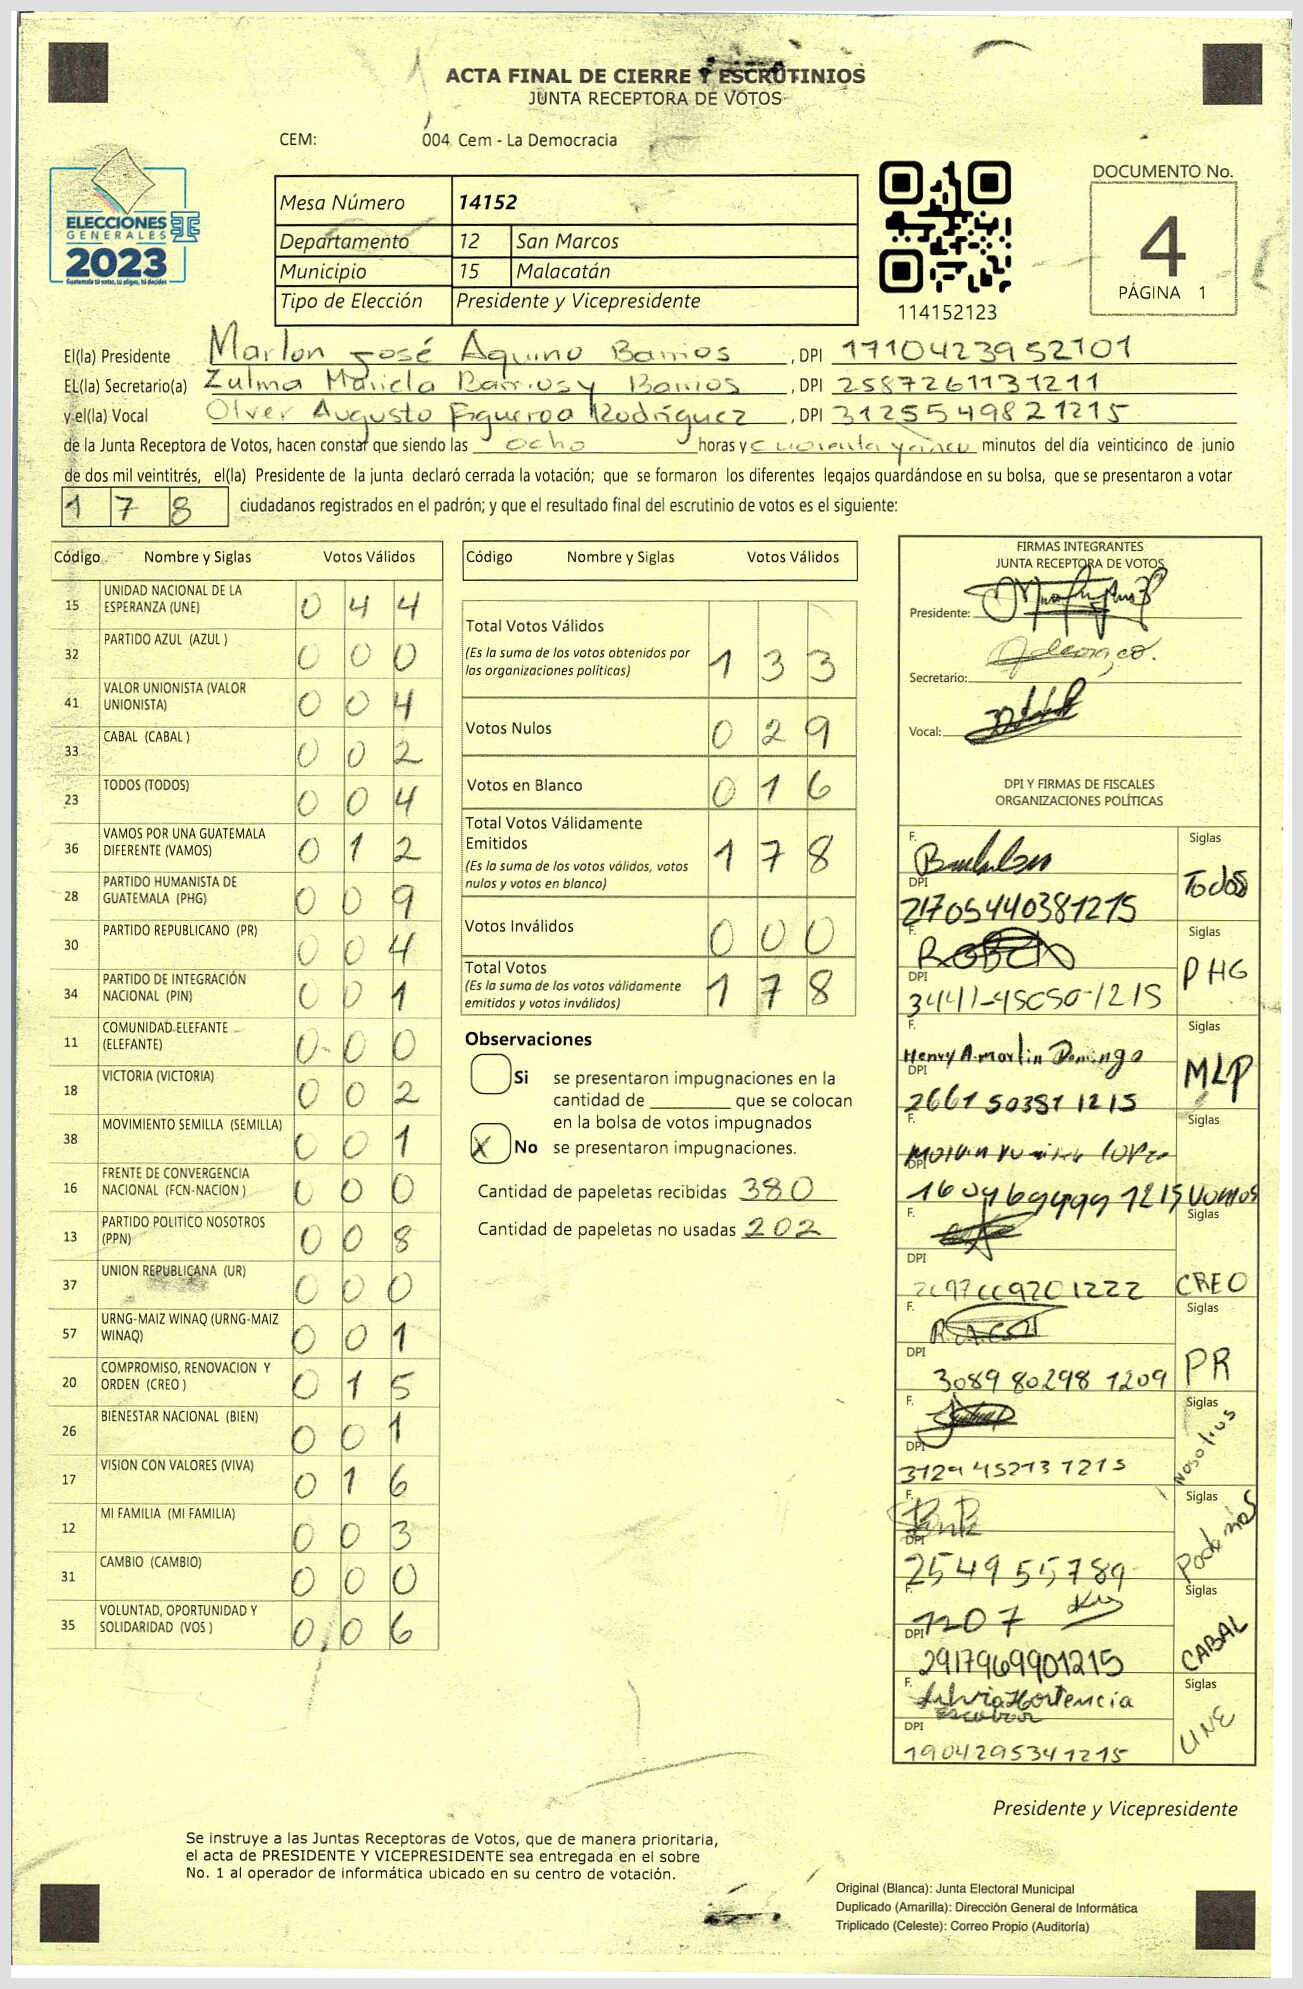 ACTA FINAL DE CIERRE Y ESCRUTINIOS
JUNTA RECEPTORA DE VOTOS
CEM: 004 Cem - La Democracia
ELECCIONES
GENERALES
2023
Guatemala tú votas, tú eliges, tú decides
Mesa Número 14152
Departamento 12 San Marcos
Municipio 15 Malacatán
Tipo de Elección Presidente y Vicepresidente
114152123
DOCUMENTO No.
4
PÁGINA 1
El(la) Presidente Marlon José Aquino Barrios , DPI 1710423952101
EL(la) Secretario(a) Zulma Mariela Barrios y Barrios , DPI 2587261131211
y el(la) Vocal Olver Augusto Figueroa Rodríguez , DPI 3125549821215
de la Junta Receptora de Votos, hacen constar que siendo las ocho horas y cuarenta y cinco minutos del día veinticinco de junio
de dos mil veintitrés, el(la) Presidente de la junta declaró cerrada la votación; que se formaron los diferentes legajos guardándose en su bolsa, que se presentaron a votar
178 ciudadanos registrados en el padrón; y que el resultado final del escrutinio de votos es el siguiente:
Código Nombre y Siglas Votos Válidos
15 UNIDAD NACIONAL DE LA ESPERANZA (UNE) 044
32 PARTIDO AZUL (AZUL ) 000
41 VALOR UNIONISTA (VALOR UNIONISTA) 004
33 CABAL (CABAL ) 002
23 TODOS (TODOS) 004
36 VAMOS POR UNA GUATEMALA DIFERENTE (VAMOS) 012
28 PARTIDO HUMANISTA DE GUATEMALA (PHG) 009
30 PARTIDO REPUBLICANO (PR) 004
34 PARTIDO DE INTEGRACIÓN NACIONAL (PIN) 001
11 COMUNIDAD ELEFANTE (ELEFANTE) 000
18 VICTORIA (VICTORIA) 002
38 MOVIMIENTO SEMILLA (SEMILLA) 001
16 FRENTE DE CONVERGENCIA NACIONAL (FCN-NACION ) 000
13 PARTIDO POLITICO NOSOTROS (PPN) 008
37 UNION REPUBLICANA (UR) 000
57 URNG-MAIZ WINAQ (URNG-MAIZ WINAQ) 001
20 COMPROMISO, RENOVACION Y ORDEN (CREO ) 015
26 BIENESTAR NACIONAL (BIEN) 001
17 VISION CON VALORES (VIVA) 016
12 MI FAMILIA (MI FAMILIA) 003
31 CAMBIO (CAMBIO) 000
35 VOLUNTAD, OPORTUNIDAD Y SOLIDARIDAD (VOS ) 006
Código Nombre y Siglas Votos Válidos
Total Votos Válidos 133
(Es la suma de los votos obtenidos por
las organizaciones políticas)
Votos Nulos 029
Votos en Blanco 016
Total Votos Válidamente
Emitidos 178
(Es la suma de los votos válidos, votos
nulos y votos en blanco)
Votos Inválidos 000
Total Votos 178
(Es la suma de los votos válidamente
emitidos y votos inválidos)
Observaciones
Si se presentaron impugnaciones en la
cantidad de ________ que se colocan
en la bolsa de votos impugnados
X No se presentaron impugnaciones.
Cantidad de papeletas recibidas 380
Cantidad de papeletas no usadas 202
FIRMAS INTEGRANTES
JUNTA RECEPTORA DE VOTOS
Presidente:
Secretario:
Vocal:
DPI Y FIRMAS DE FISCALES
ORGANIZACIONES POLÍTICAS
F. Siglas
DPI Todos
21705440381215
F. Siglas
DPI PHG
F. Henry A. Marlin Domingo Siglas
DPI MLP
2661503811215
F. Siglas
DPI Vamos
F. Siglas
DPI CREO
F. Siglas
DPI PR
3089802981209
F. Siglas
DPI Nosotros
3129452131215
F. Siglas
DPI Podemos
254955789
F. 1207 Siglas
DPI CABAL
2917969901215
F. Silvia Hortencia Siglas
Escobar
DPI UNE
1904295341215
Presidente y Vicepresidente
Se instruye a las Juntas Receptoras de Votos, que de manera prioritaria,
el acta de PRESIDENTE Y VICEPRESIDENTE sea entregada en el sobre
No. 1 al operador de informática ubicado en su centro de votación.
Original (Blanca): Junta Electoral Municipal
Duplicado (Amarilla): Dirección General de Informática
Triplicado (Celeste): Correo Propio (Auditoría)